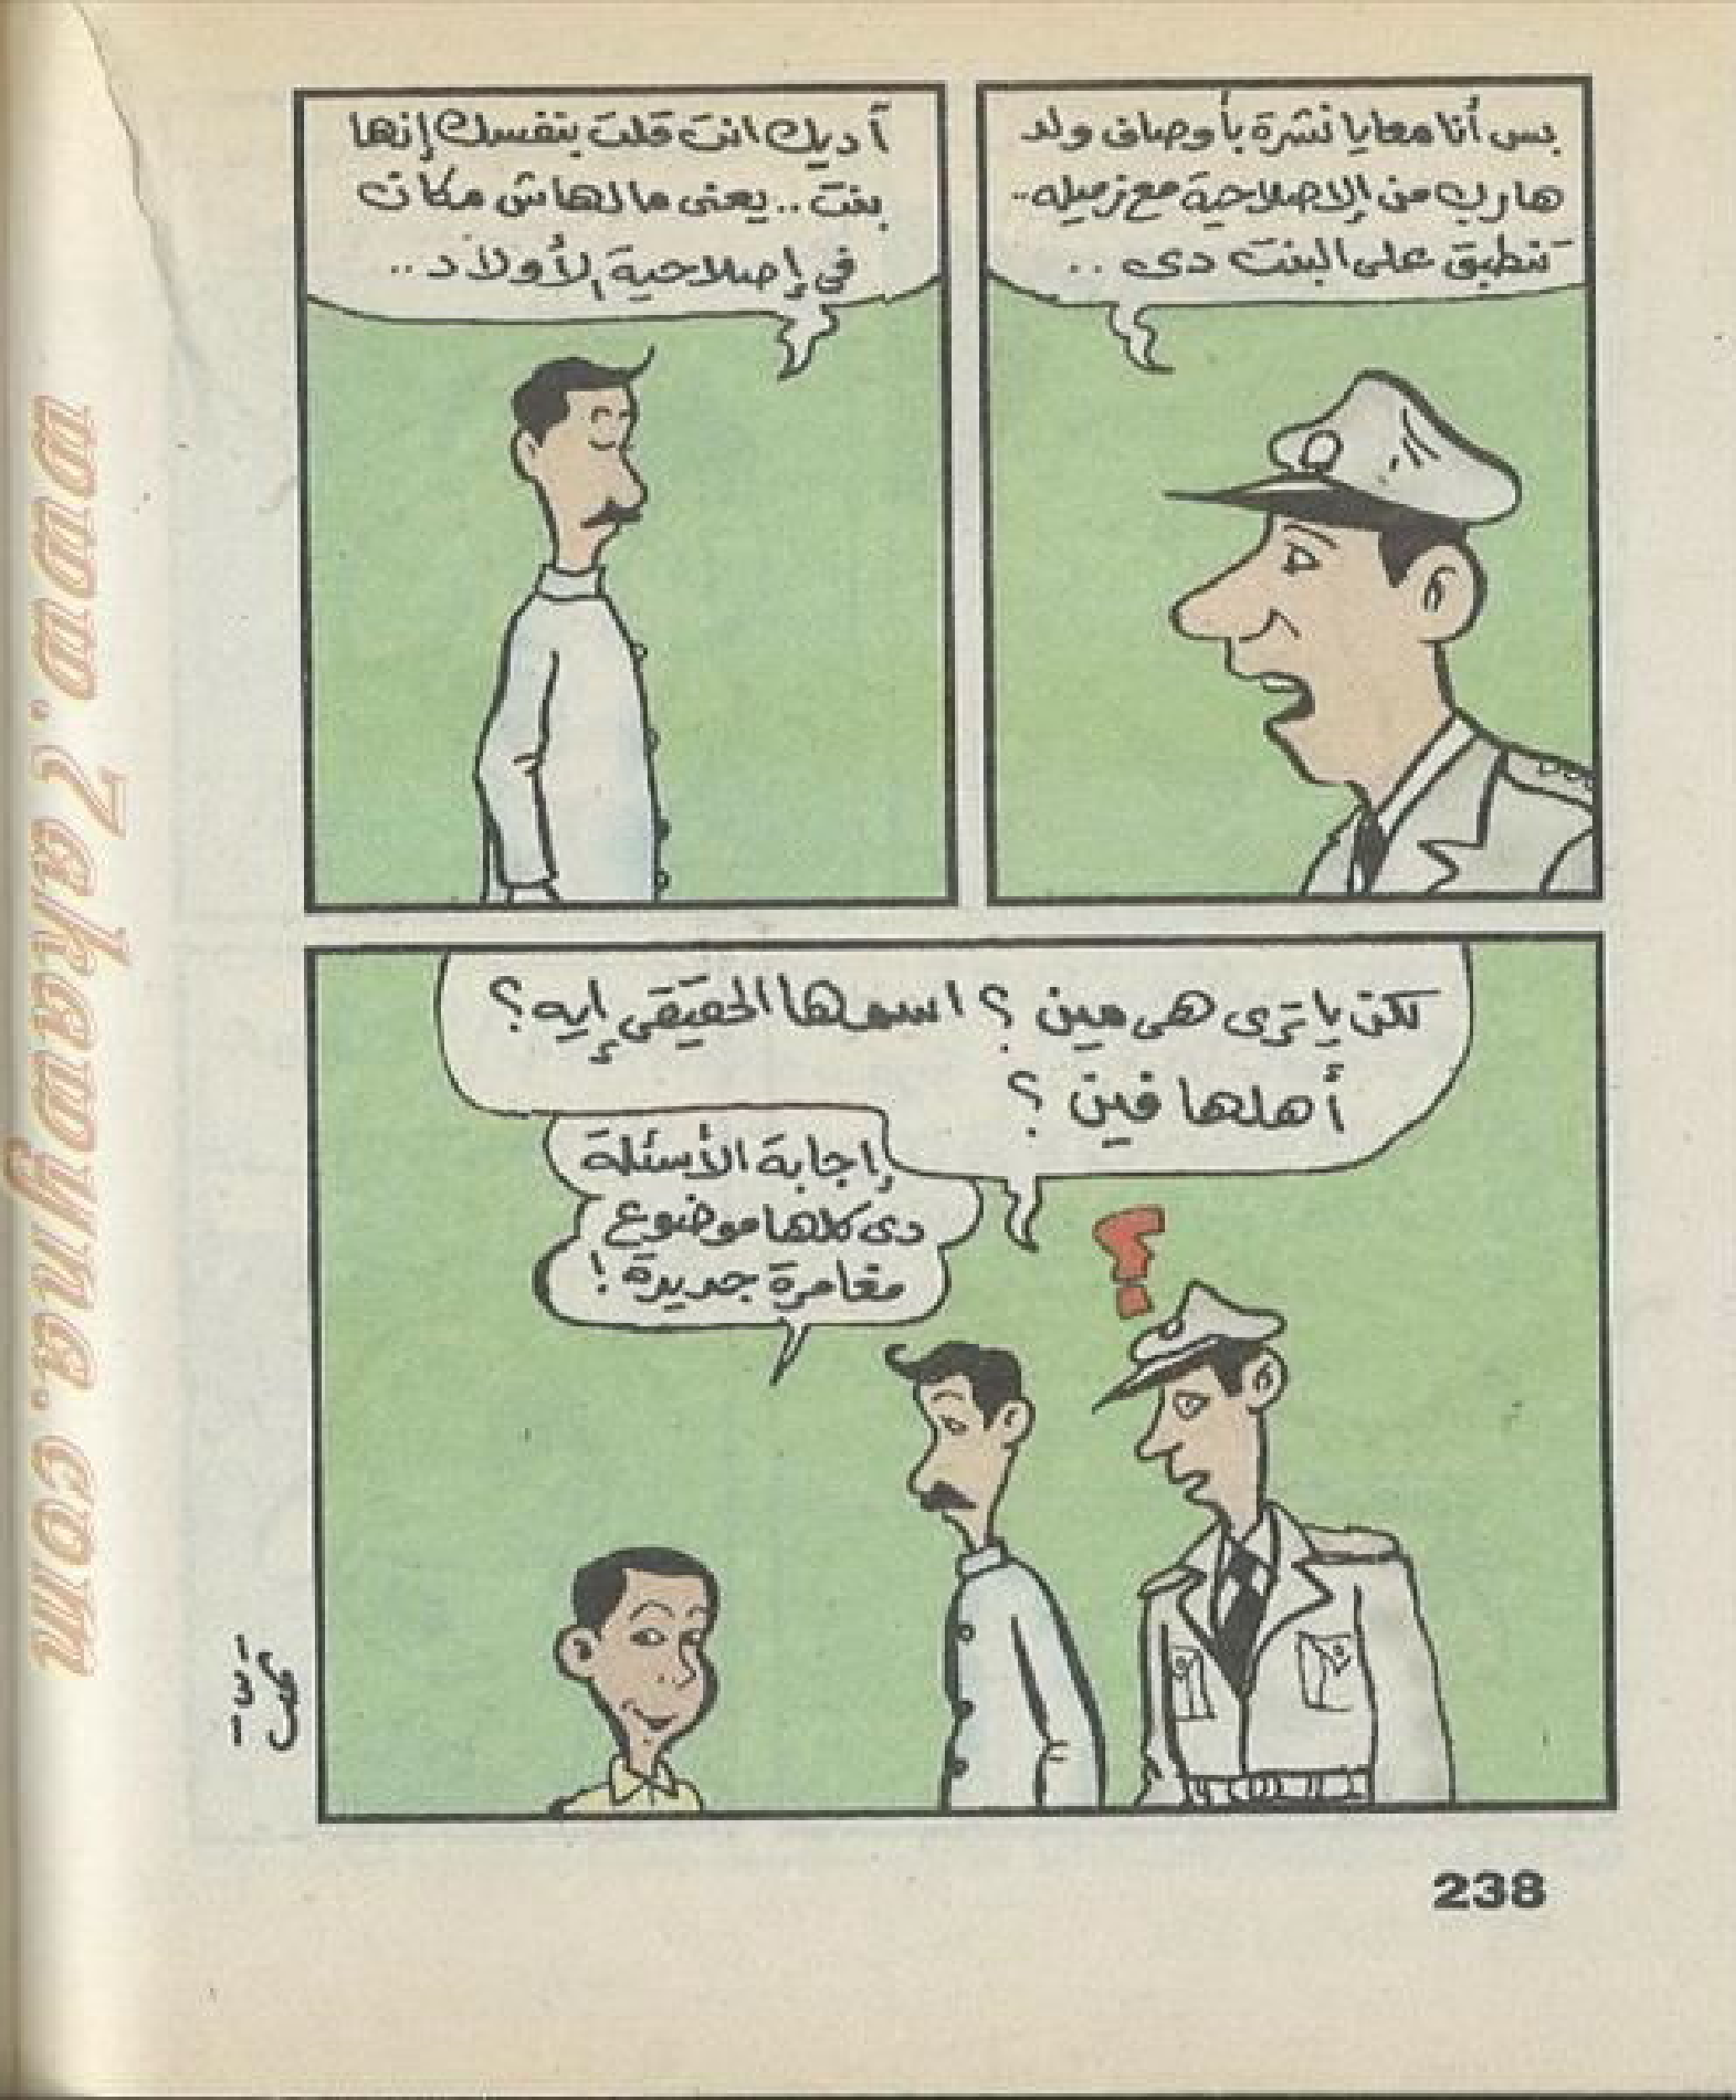 بس أنا معايا نشرة بأوصاف ولد
هارب من الإصلاحية مع زميله..
تنطبق على البنت دى ..
آديك انت قلت بنفسك إنها
بنت .. يعنى مالهاش مكان
فى إصلاحية الأولاد ..
لكن يا ترى هى مين ؟ اسمها الحقيقى إيه ؟
أهلها فين ؟
إجابة الأسئلة
دى كلها موضوع
مغامرة جديدة !
238
www.7akawyina.com